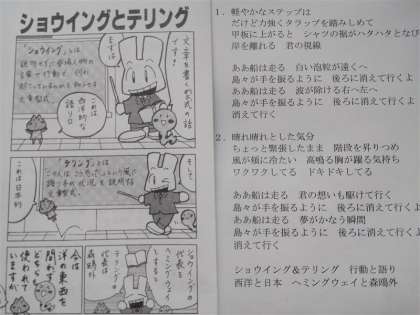 ショウイングとテリング
文章を書く方式の話
です！
まずは
「ショウイング」とは
説明せずに登場人物の
言葉や行動で、何が
文章型式。
これは
西洋的な
語り口
そして
「テリング」とは
語り手が状況を説明する
文章型式。
これは日本的
ショウイングの
代表は
ヘミングウェイ
テリングの
代表は
森鴎外
今は
洋の東西を
問わず
どちらも
使われて
いますが
1．軽やかなステップは
だけど力強くタラップを踏みしめて
甲板に上がると　シャツの裾がハタハタとなび
岸を離れる　君の視線
ああ船は走る　白い泡粒が遠くへ
島々が手を振るように　後ろに消えて行くよ
ああ船は走る　波が除ける右へ左へ
島々が手を振るように　後ろに消えて行くよ
消えて行く
2．晴れ晴れとした気分
ちょっと緊張したまま　階段を昇りつめ
風が頬に冷たい　高鳴る胸が躍る気持ち
ワクワクしてる　ドキドキしてる
ああ船は走る　君の想いも駆けて行く
島々が手を振るように　後ろに消えて行くよ
ああ船は走る　夢がかなう瞬間
島々が手を振るように　後ろに消えて行くよ
消えて行く
ショウイング＆テリング　行動と語り
西洋と日本　ヘミングウェイと森鴎外